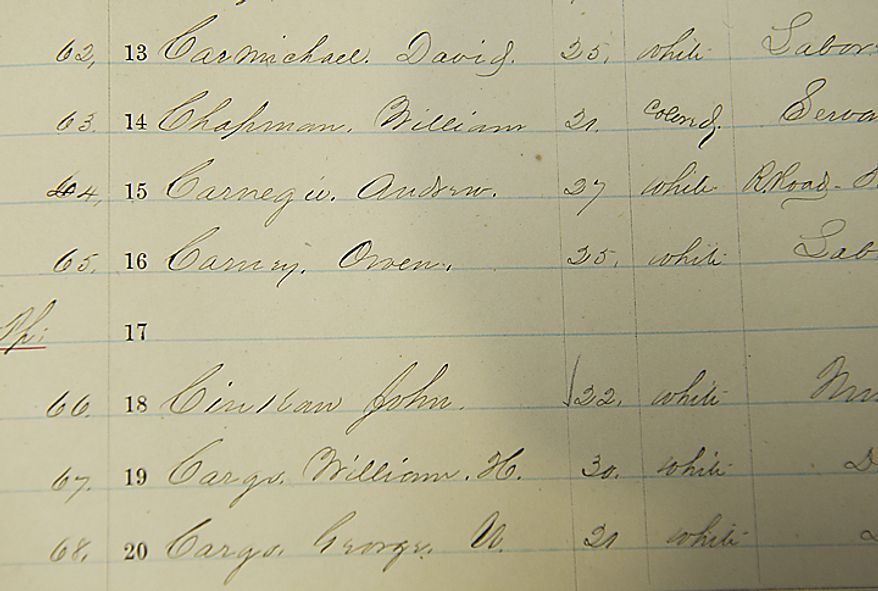 62, 13 Carmichael. David. 25, white Labor
63. 14 Chapman. William 21. Colored. Serva
64, 15 Carnegie. Andrew. 27 white R.Road-
65. 16 Carney. Owen. 25, white Lab
17
66. 18 John. 22. white
67. 19 Cargo. William. H. 30. white
68. 20 Cargo. George. 21 white